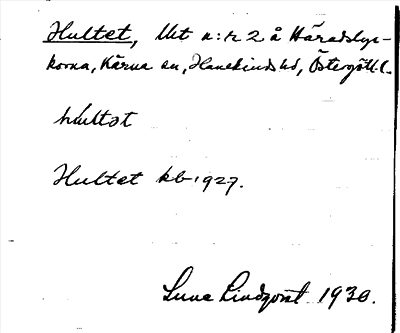 Hultet, Ut n:r 2 å Häradsbyc-
korna, Kärna sn, Hanekinds hd, Östergötl. l.
hultət
Hultet kb 1927.
Sune Lindqvist 1930.